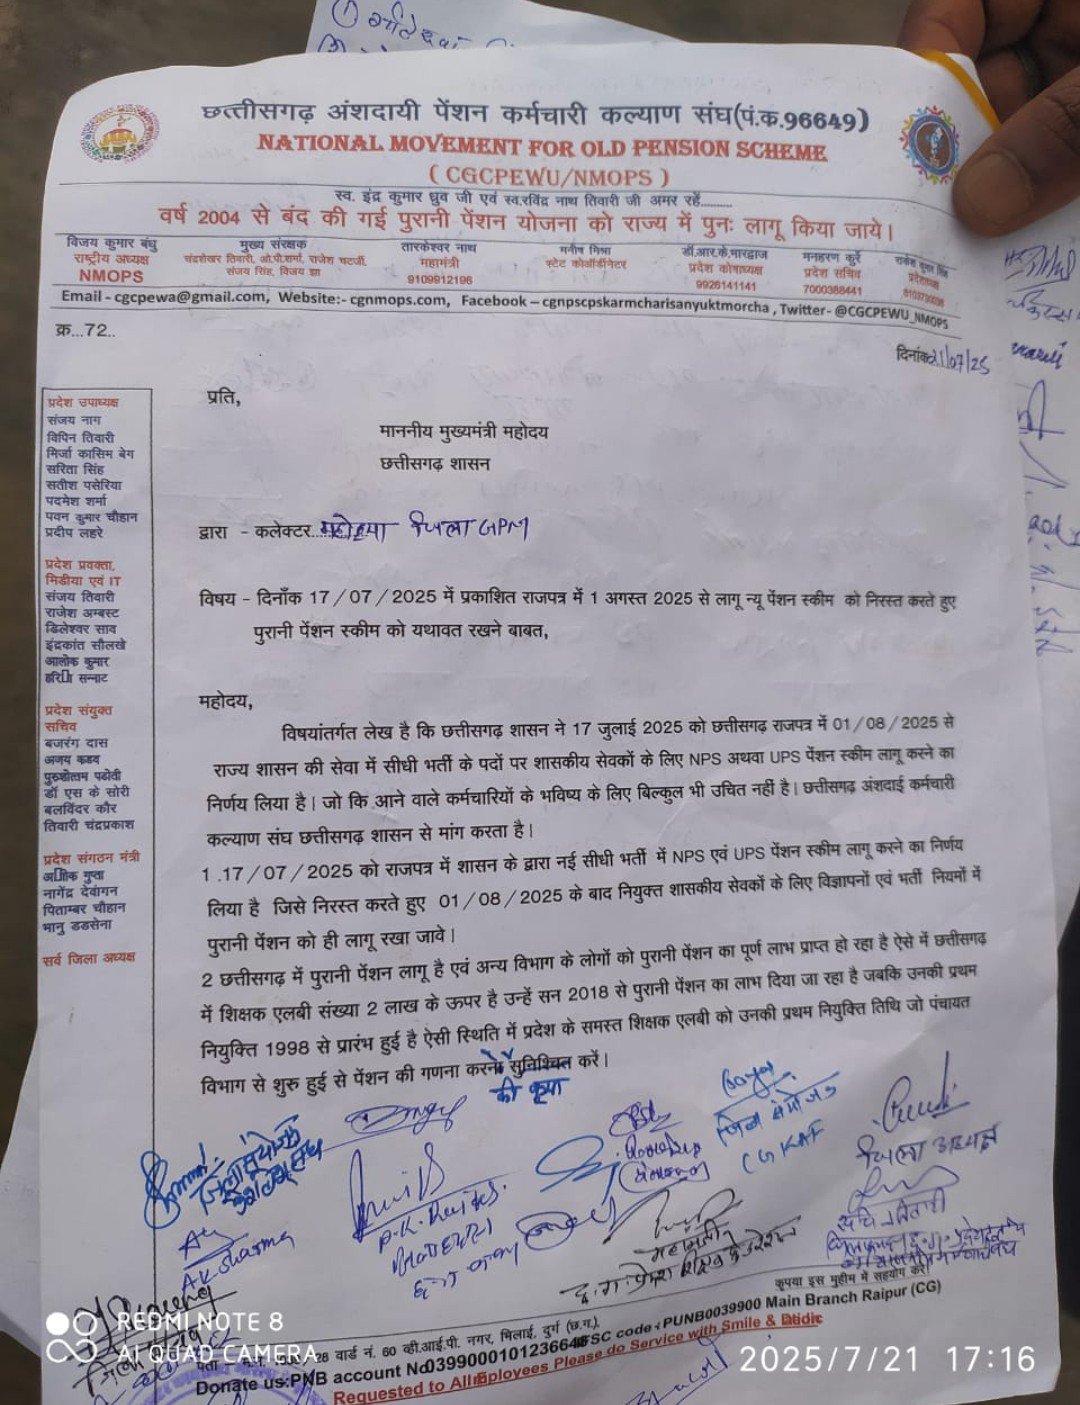 छत्तीसगढ़ अंशदायी पेंशन कर्मचारी कल्याण संघ(पं.क.96649)
NATIONAL MOVEMENT FOR OLD PENSION SCHEME
( CGCPEWU/NMOPS )
स्व. इंद्र कुमार ध्रुव जी एवं स्व.रविंद्र नाथ तिवारी जी अमर रहें.........
वर्ष 2004 से बंद की गई पुरानी पेंशन योजना को राज्य में पुनः लागू किया जाये।
विजय कुमार बंधु
राष्ट्रीय अध्यक्ष
NMOPS
मुख्य संरक्षक
चंद्रशेखर तिवारी, ओ.पी.शर्मा, राजेश चटर्जी.
संजय सिंह, विजय झा
तारकेश्वर नाथ
महामंत्री
9109912196
मनीष मिश्रा
स्टेट कोऑर्डीनेटर
डॉ.आर.के.भारद्वाज
प्रदेश कोषाध्यक्ष
9926141141
मनहरण कुर्रे
प्रदेश सचिव
7000388441
राकेश कुमार सिंह
Email - cgcpewa@gmail.com, Website:- cgnmops.com, Facebook – cgnpscpskarmcharisanyuktmorcha , Twitter- @CGCPEWU_NMOPS
क्र...72..
दिनांक 21/07/25
प्रति,
माननीय मुख्यमंत्री महोदय
छत्तीसगढ़ शासन
द्वारा - कलेक्टर...महोदया जिला GPM
विषय - दिनाँक 17/07/2025 में प्रकाशित राजपत्र में 1 अगस्त 2025 से लागू न्यू पेंशन स्कीम को निरस्त करते हुए
पुरानी पेंशन स्कीम को यथावत रखने बाबत,
महोदय,
विषयांतर्गत लेख है कि छत्तीसगढ़ शासन ने 17 जुलाई 2025 को छत्तीसगढ़ राजपत्र में 01/08/2025 से
राज्य शासन की सेवा में सीधी भर्ती के पदों पर शासकीय सेवकों के लिए NPS अथवा UPS पेंशन स्कीम लागू करने का
निर्णय लिया है। जो कि आने वाले कर्मचारियों के भविष्य के लिए बिल्कुल भी उचित नहीं है। छत्तीसगढ़ अंशदाई कर्मचारी
कल्याण संघ छत्तीसगढ़ शासन से मांग करता है।
1 .17/07/2025 को राजपत्र में शासन के द्वारा नई सीधी भर्ती में NPS एवं UPS पेंशन स्कीम लागू करने का निर्णय
लिया है जिसे निरस्त करते हुए 01/08/2025 के बाद नियुक्त शासकीय सेवकों के लिए विज्ञापनों एवं भर्ती नियमों में
पुरानी पेंशन को ही लागू रखा जावे।
2 छत्तीसगढ़ में पुरानी पेंशन लागू है एवं अन्य विभाग के लोगों को पुरानी पेंशन का पूर्ण लाभ प्राप्त हो रहा है ऐसे में छत्तीसगढ़
में शिक्षक एलबी संख्या 2 लाख के ऊपर है उन्हें सन 2018 से पुरानी पेंशन का लाभ दिया जा रहा है जबकि उनकी प्रथम
नियुक्ति 1998 से प्रारंभ हुई है ऐसी स्थिति में प्रदेश के समस्त शिक्षक एलबी को उनकी प्रथम नियुक्ति तिथि जो पंचायत
विभाग से शुरु हुई से पेंशन की गणना करने सुनिश्चित करें।
की कृपा
प्रदेश उपाध्यक्ष
संजय नाग
विपिन तिवारी
मिर्जा कासिम बेग
सरिता सिंह
सतीश पसेरिया
पदमेश शर्मा
पवन कुमार चौहान
प्रदीप लहरे
प्रदेश प्रवक्ता,
मिडीया एवं IT
संजय तिवारी
राजेश अम्बस्ट
डिलेश्वर साव
इंद्रकांत सौलखे
आलोक कुमार
सन्नाट
प्रदेश संयुक्त
सचिव
बजरंग दास
अजय कडव
पुरुषोत्तम पढोवी
डॉ एस के सोरी
बलविंदर कौर
तिवारी चंद्रप्रकाश
प्रदेश संगठन मंत्री
गुप्ता
नागेंद्र देवांगन
पिताम्बर चौहान
भानु डडसेना
सर्व जिला अध्यक्ष
जिला संयोजक
जिला संयोजक
CGKAF
जिला अध्यक्ष
A.K. Sharma
P.K.
महामंत्री
कृपया इस मुहीम में सहयोग करें
28 वार्ड नं. 60 व्ही.आई.पी. नगर, भिलाई, दुर्ग (छ.ग.)
Donate us:PNB account No0399000101236646 IFSC code : PUNB0039900 Main Branch Raipur (CG)
Requested to All Employees Please do Service with Smile &
REDMI NOTE 8
AI QUAD CAMERA
2025/7/21 17:16